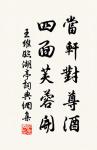 當軒對尊酒
四面芙蓉開
王維臨湖亭詞典網集